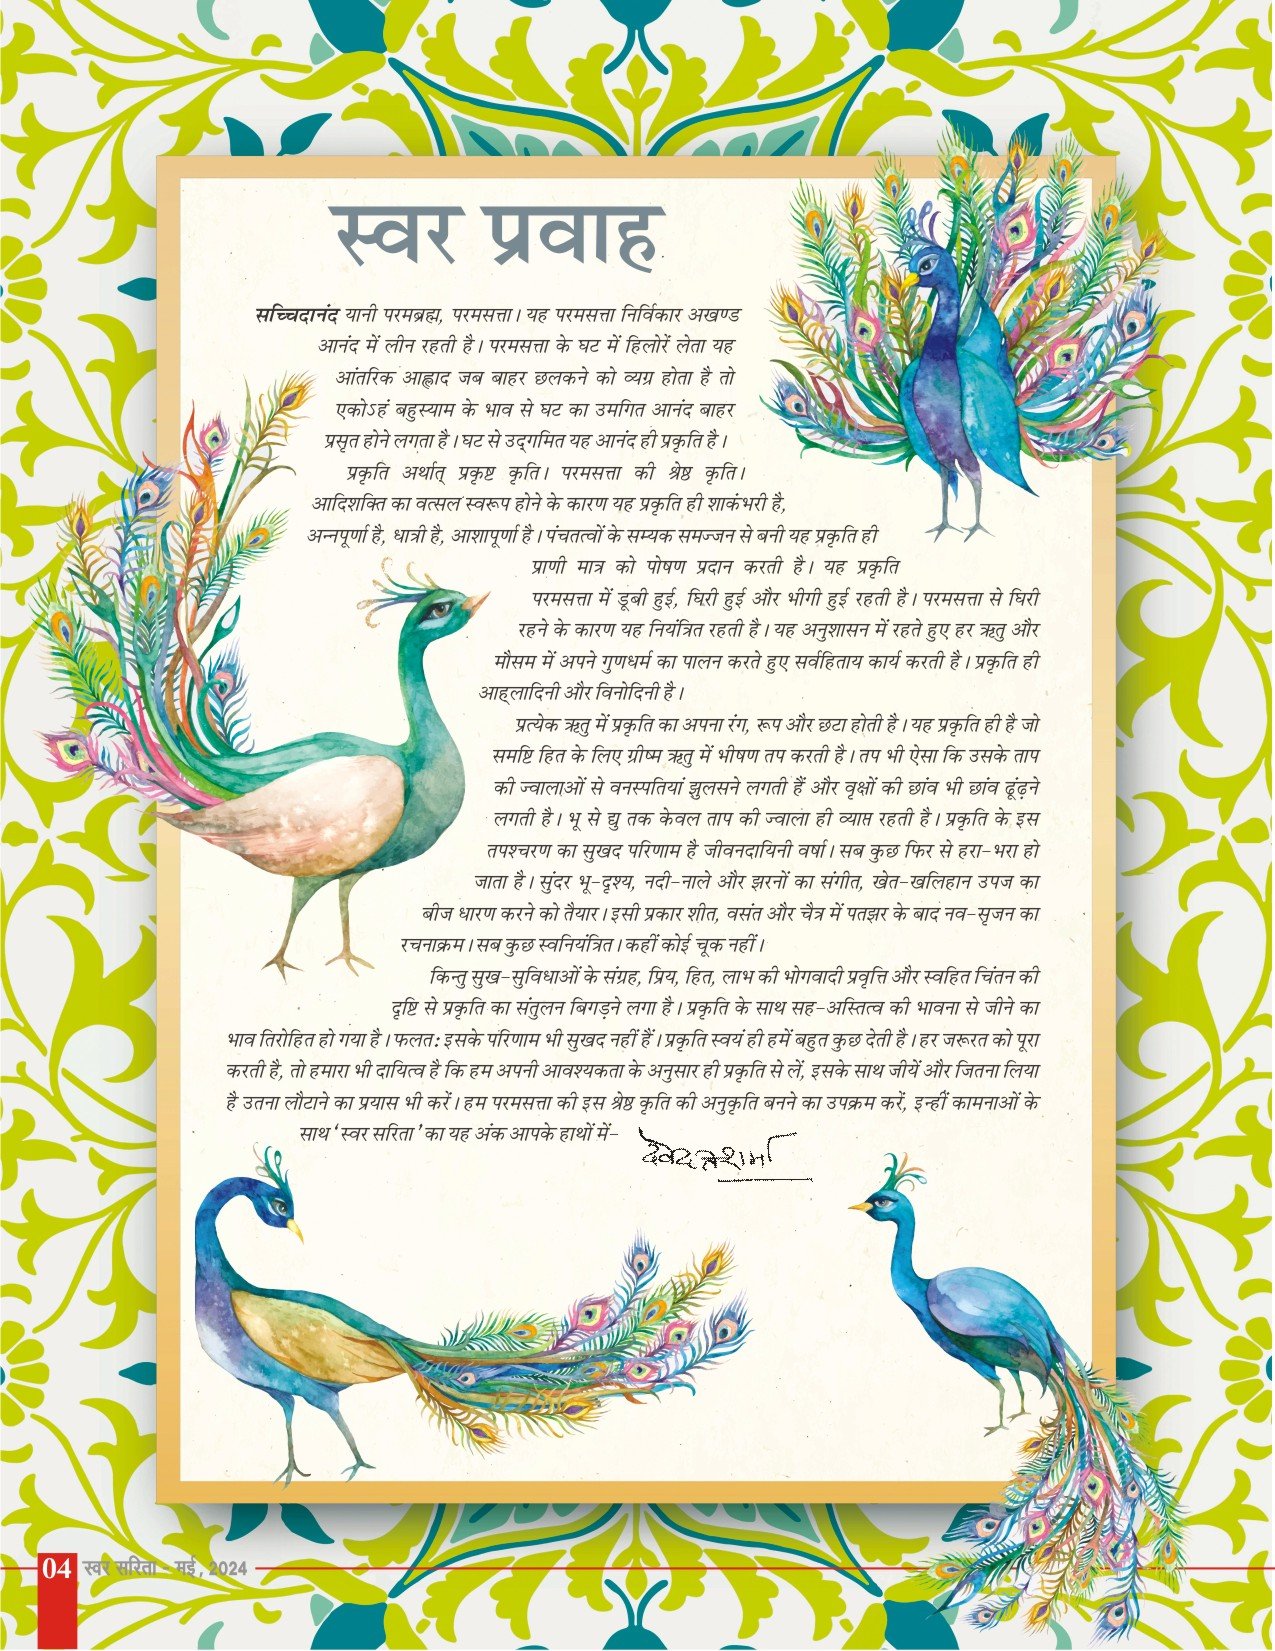 स्वर प्रवाह
सच्चिदानंद यानी परमब्रह्म, परमसत्ता। यह परमसत्ता निर्विकार अखण्ड
आनंद में लीन रहती है। परमसत्ता के घट में हिलोरें लेता यह
आंतरिक आह्लाद जब बाहर छलकने को व्यग्र होता है तो
एकोऽहं बहुस्याम के भाव से घट का उमगित आनंद बाहर
प्रसृत होने लगता है। घट से उद्‌गमित यह आनंद ही प्रकृति है।
प्रकृति अर्थात् प्रकृष्ट कृति। परमसत्ता की श्रेष्ठ कृति।
आदिशक्ति का वत्सल स्वरूप होने के कारण यह प्रकृति ही शाकंभरी है,
अन्नपूर्णा है, धात्री है, आशापूर्णा है। पंचतत्वों के सम्यक समज्जन से बनी यह प्रकृति ही
प्राणी मात्र को पोषण प्रदान करती है। यह प्रकृति
परमसत्ता में डूबी हुई, घिरी हुई और भीगी हुई रहती है। परमसत्ता से घिरी
रहने के कारण यह नियंत्रित रहती है। यह अनुशासन में रहते हुए हर ऋतु और
मौसम में अपने गुणधर्म का पालन करते हुए सर्वहिताय कार्य करती है। प्रकृति ही
आह्‌लादिनी और विनोदिनी है।
प्रत्येक ऋतु में प्रकृति का अपना रंग, रूप और छटा होती है। यह प्रकृति ही है जो
समष्टि हित के लिए ग्रीष्म ऋतु में भीषण तप करती है। तप भी ऐसा कि उसके ताप
की ज्वालाओं से वनस्पतियां झुलसने लगती हैं और वृक्षों की छांव भी छांव ढूंढ़ने
लगती है। भू से द्यु तक केवल ताप की ज्वाला ही व्याप्त रहती है। प्रकृति के इस
तपश्चरण का सुखद परिणाम है जीवनदायिनी वर्षा। सब कुछ फिर से हरा-भरा हो
जाता है। सुंदर भू-दृश्य, नदी-नाले और झरनों का संगीत, खेत-खलिहान उपज का
बीज धारण करने को तैयार। इसी प्रकार शीत, वसंत और चैत्र में पतझर के बाद नव-सृजन का
रचनाक्रम। सब कुछ स्वनियंत्रित। कहीं कोई चूक नहीं।
किन्तु सुख-सुविधाओं के संग्रह, प्रिय, हित, लाभ की भोगवादी प्रवृत्ति और स्वहित चिंतन की
दृष्टि से प्रकृति का संतुलन बिगड़ने लगा है। प्रकृति के साथ सह-अस्तित्व की भावना से जीने का
भाव तिरोहित हो गया है। फलत: इसके परिणाम भी सुखद नहीं हैं। प्रकृति स्वयं ही हमें बहुत कुछ देती है। हर जरूरत को पूरा
करती है, तो हमारा भी दायित्व है कि हम अपनी आवश्यकता के अनुसार ही प्रकृति से लें, इसके साथ जीयें और जितना लिया
है उतना लौटाने का प्रयास भी करें। हम परमसत्ता की इस श्रेष्ठ कृति की अनुकृति बनने का उपक्रम करें, इन्हीं कामनाओं के
साथ 'स्वर सरिता' का यह अंक आपके हाथों में-
04 स्वर सरिता - मई, 2024